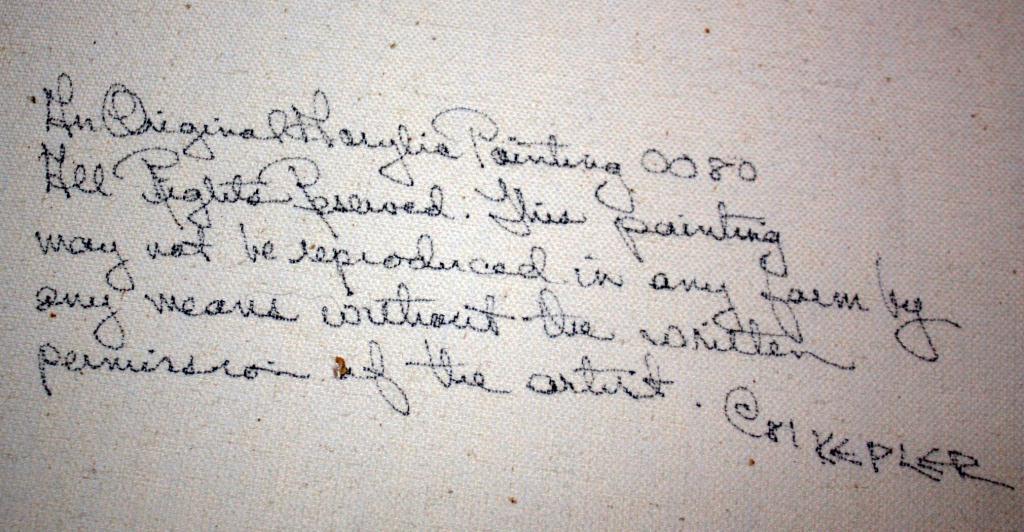 An Original Harylia Painting 0080
All Rights Reserved. This painting
may not be reproduced in any form by
any means without the written
permission of the artist. © 81 KEPLER